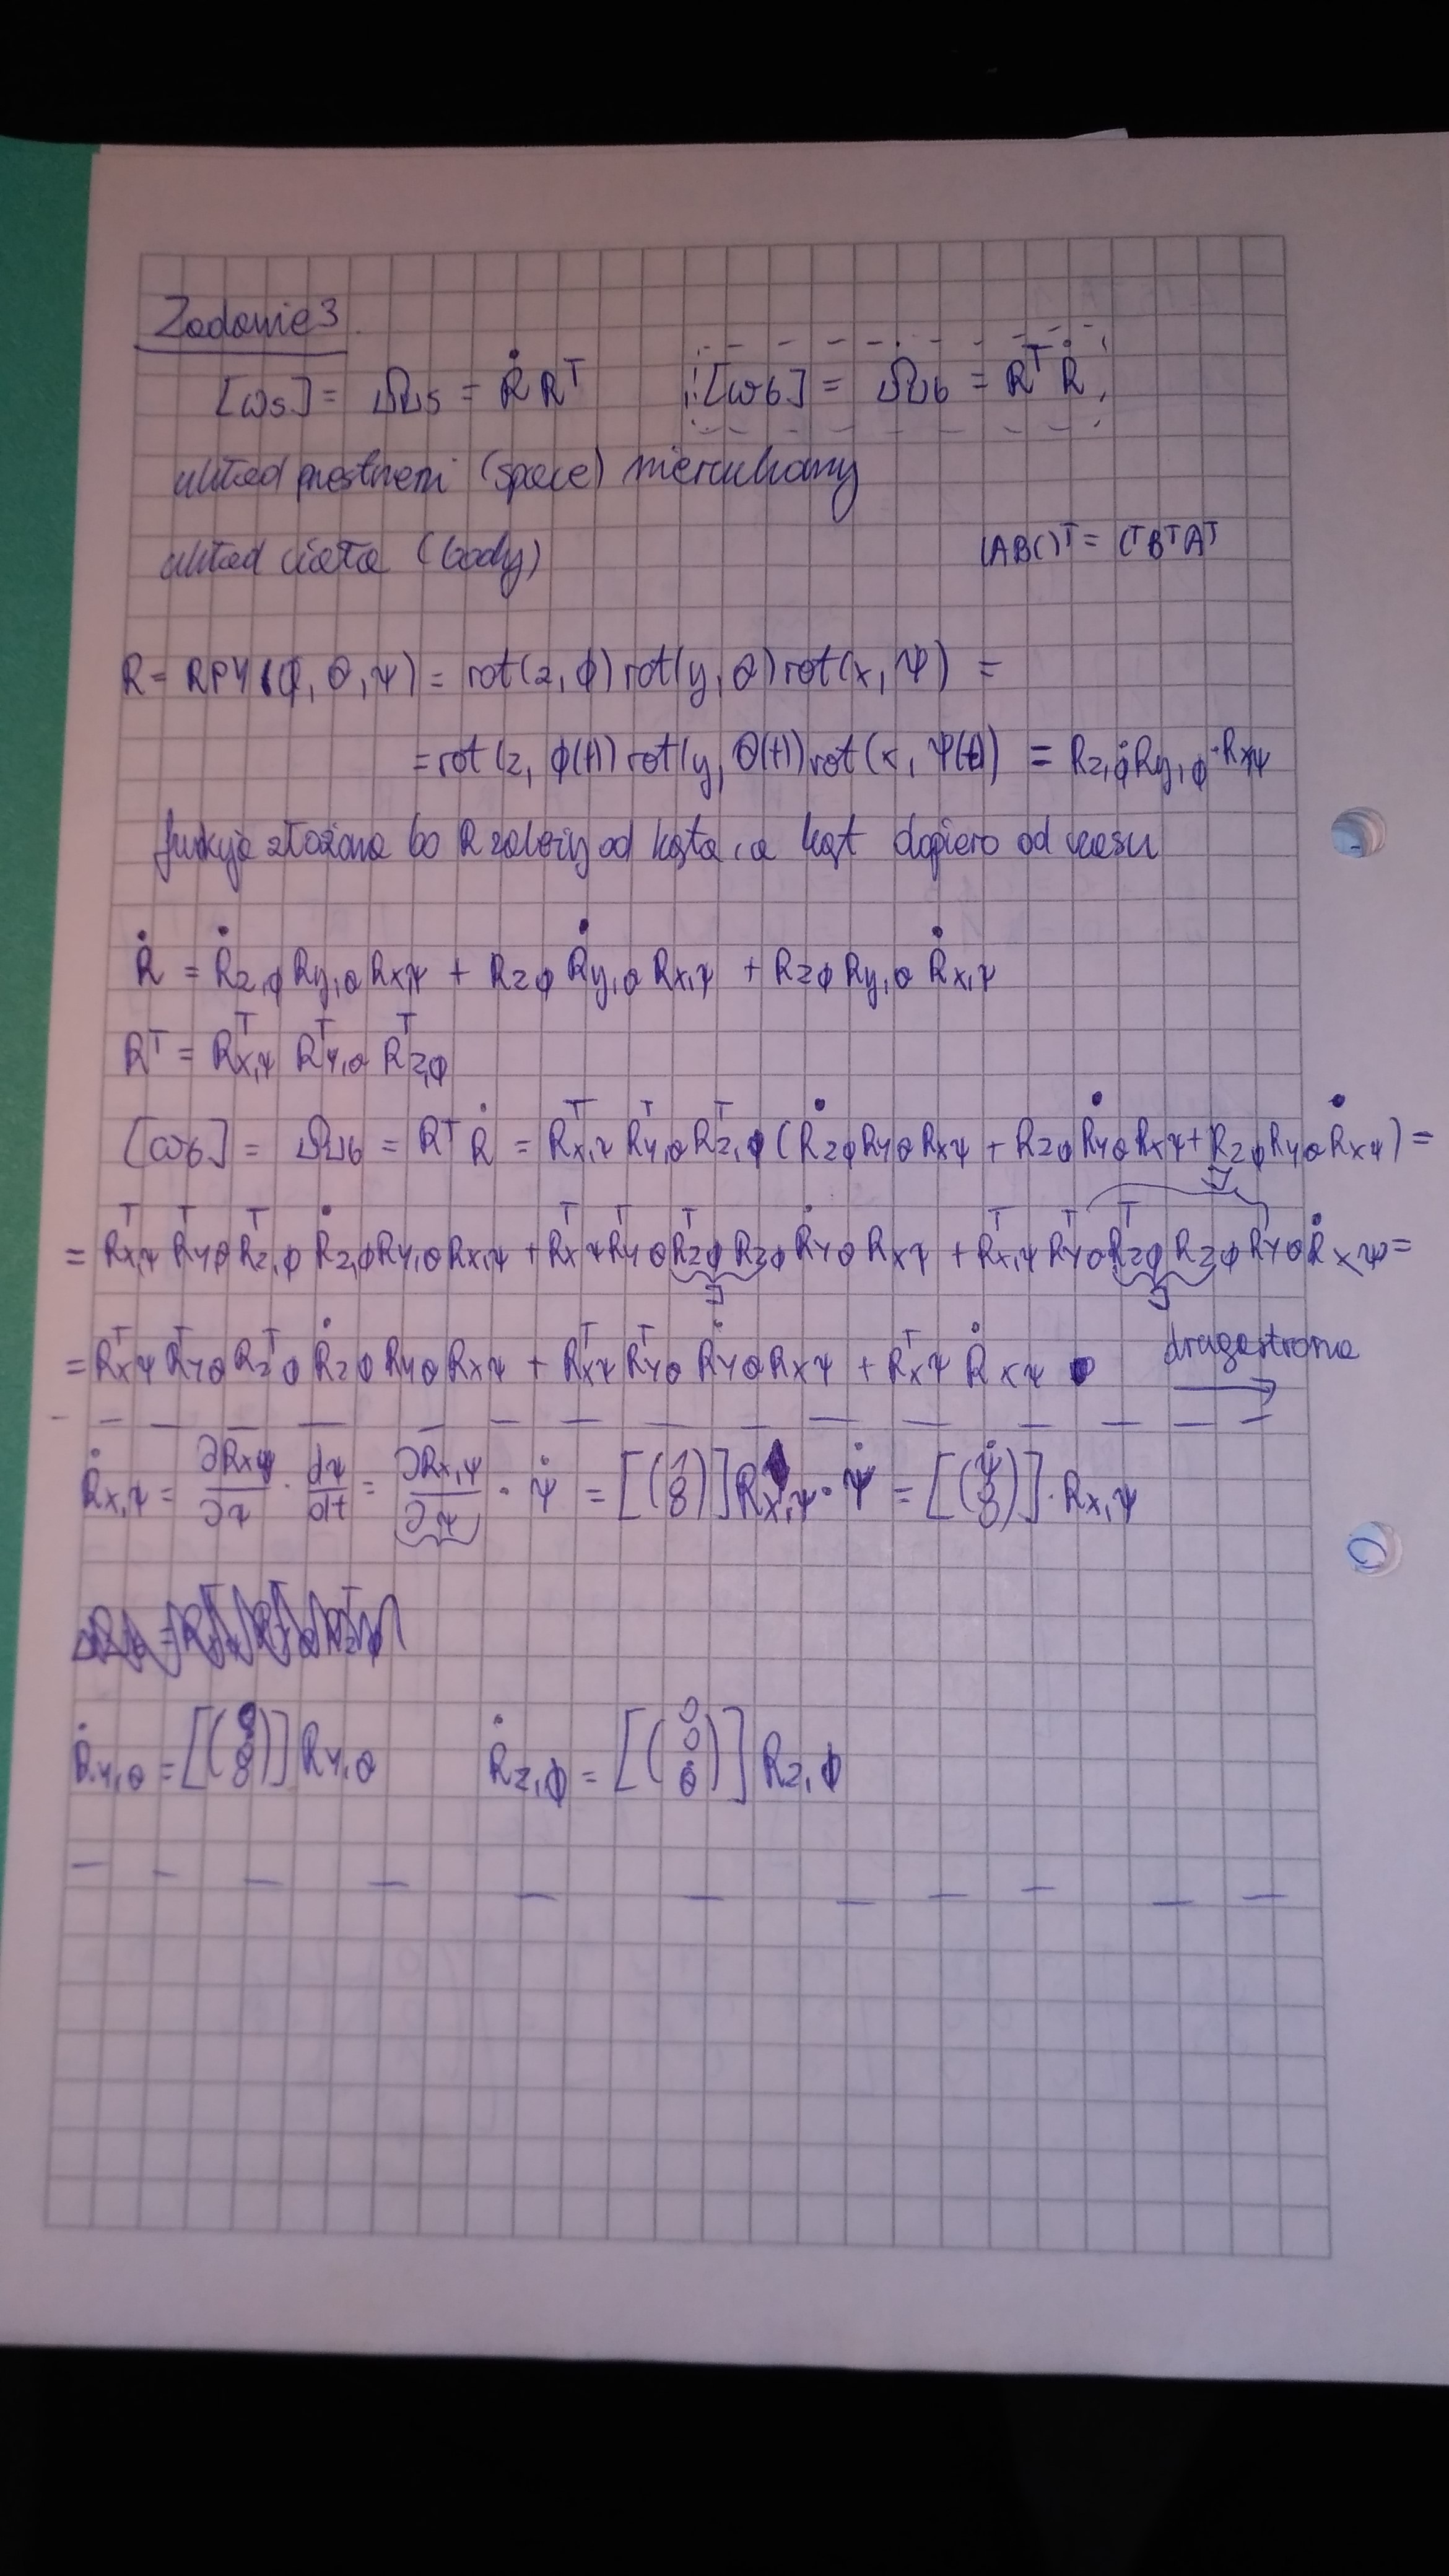 Zadanie 3
[ωs] = Ωs = Ṙ Rᵀ [ωb] = Ωb = Rᵀ Ṙ
układ przestrzeni (space) nieruchomy
układ ciała (body) (ABC)ᵀ = CᵀBᵀAᵀ
R = RPY(φ, θ, ψ) = rot(z, φ) rot(y, θ) rot(x, ψ) =
= rot(z, φ(t)) rot(y, θ(t)) rot(x, ψ(t)) = Rz,φ Ry,φ · Rxψ
funkcja złożona bo R zależy od kąta, a kąt dopiero od czasu
Ṙ = Ṙz,φ Ry,θ Rx,ψ + Rzφ Ṙy,θ Rx,ψ + Rzφ Ry,θ Ṙx,ψ
Rᵀ = Rᵀx,ψ Rᵀy,θ Rᵀz,φ
[ωb] = Ωb = Rᵀ Ṙ = Rᵀx,ψ Rᵀy,θ Rᵀz,φ (Ṙzφ Ryθ Rxψ + Rzφ Ṙyθ Rxψ + Rzφ Ryθ Ṙxψ) =
= Rᵀx,ψ Rᵀyθ Rᵀz,φ Ṙz,φ Ry,θ Rx,ψ + Rᵀxψ Rᵀyθ Rᵀzφ Rzφ Ṙyθ Rxψ + Rᵀx,ψ Rᵀyθ Rᵀzφ Rzφ Ryθ Ṙxψ =
J J J
= Rᵀxψ Rᵀyθ Rᵀzφ Ṙzφ Ryθ Rxψ + Rᵀxψ Rᵀyθ Ṙyθ Rxψ + Rᵀxψ Ṙxψ druga strona →
Ṙx,ψ = ∂Rxψ/∂ψ · dψ/dt = ∂Rx,ψ/∂ψ · ψ̇ = [(1 0 0)] Rx,ψ · ψ̇ = [(ψ̇ 0 0)] · Rx,ψ
Ṙy,θ = [( )] Ry,θ Ṙz,φ = [(0 0 )] Rz,φ